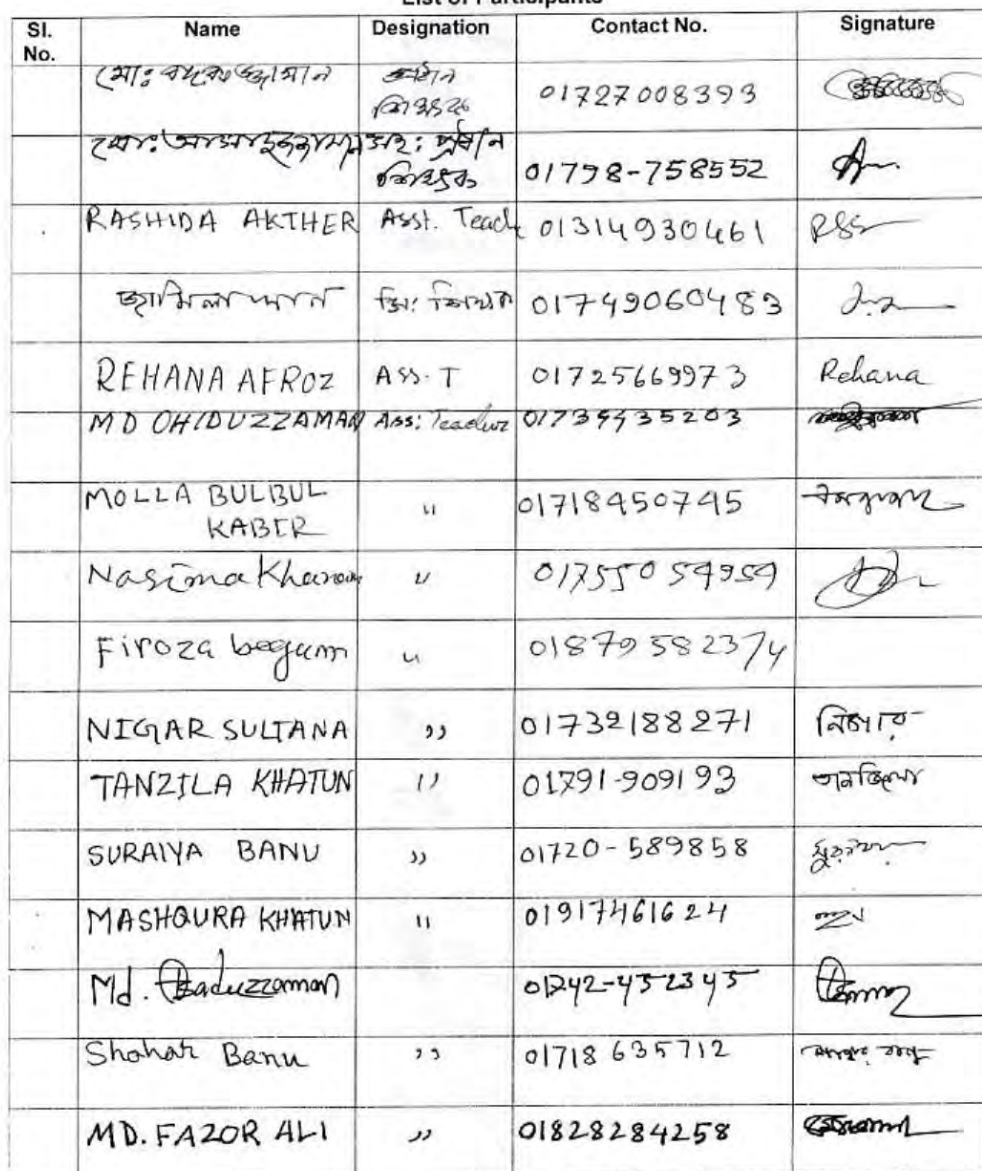 List of Participants
Sl. No. Name Designation Contact No. Signature
মোঃ বদরুজ্জামান প্রধান শিক্ষক 01727008393
মোঃ সহঃ প্রধান শিক্ষক 01798-758552
RASHIDA AKTHER Asst. Teach 01314930461
জামিলা শিক্ষক 01749060483
REHANA AFROZ Ass. T 01725669973 Rehana
MD OHIDUZZAMAN Ass: Teacher 01739435203
MOLLA BULBUL KABER " 01718450745
Nasima Khanom " 01755054954
Firoza begum " 01879582374
NIGAR SULTANA " 01732188271 নিগার
TANZILA KHATUN " 01791-909193 তানজিলা
SURAIYA BANU " 01720-589858 সুরাইয়া
MASHQURA KHATUN " 01917461624
Md. Asaduzzaman 452345
Shahar Banu " 01718635712
MD. FAZOR ALI " 01828284258